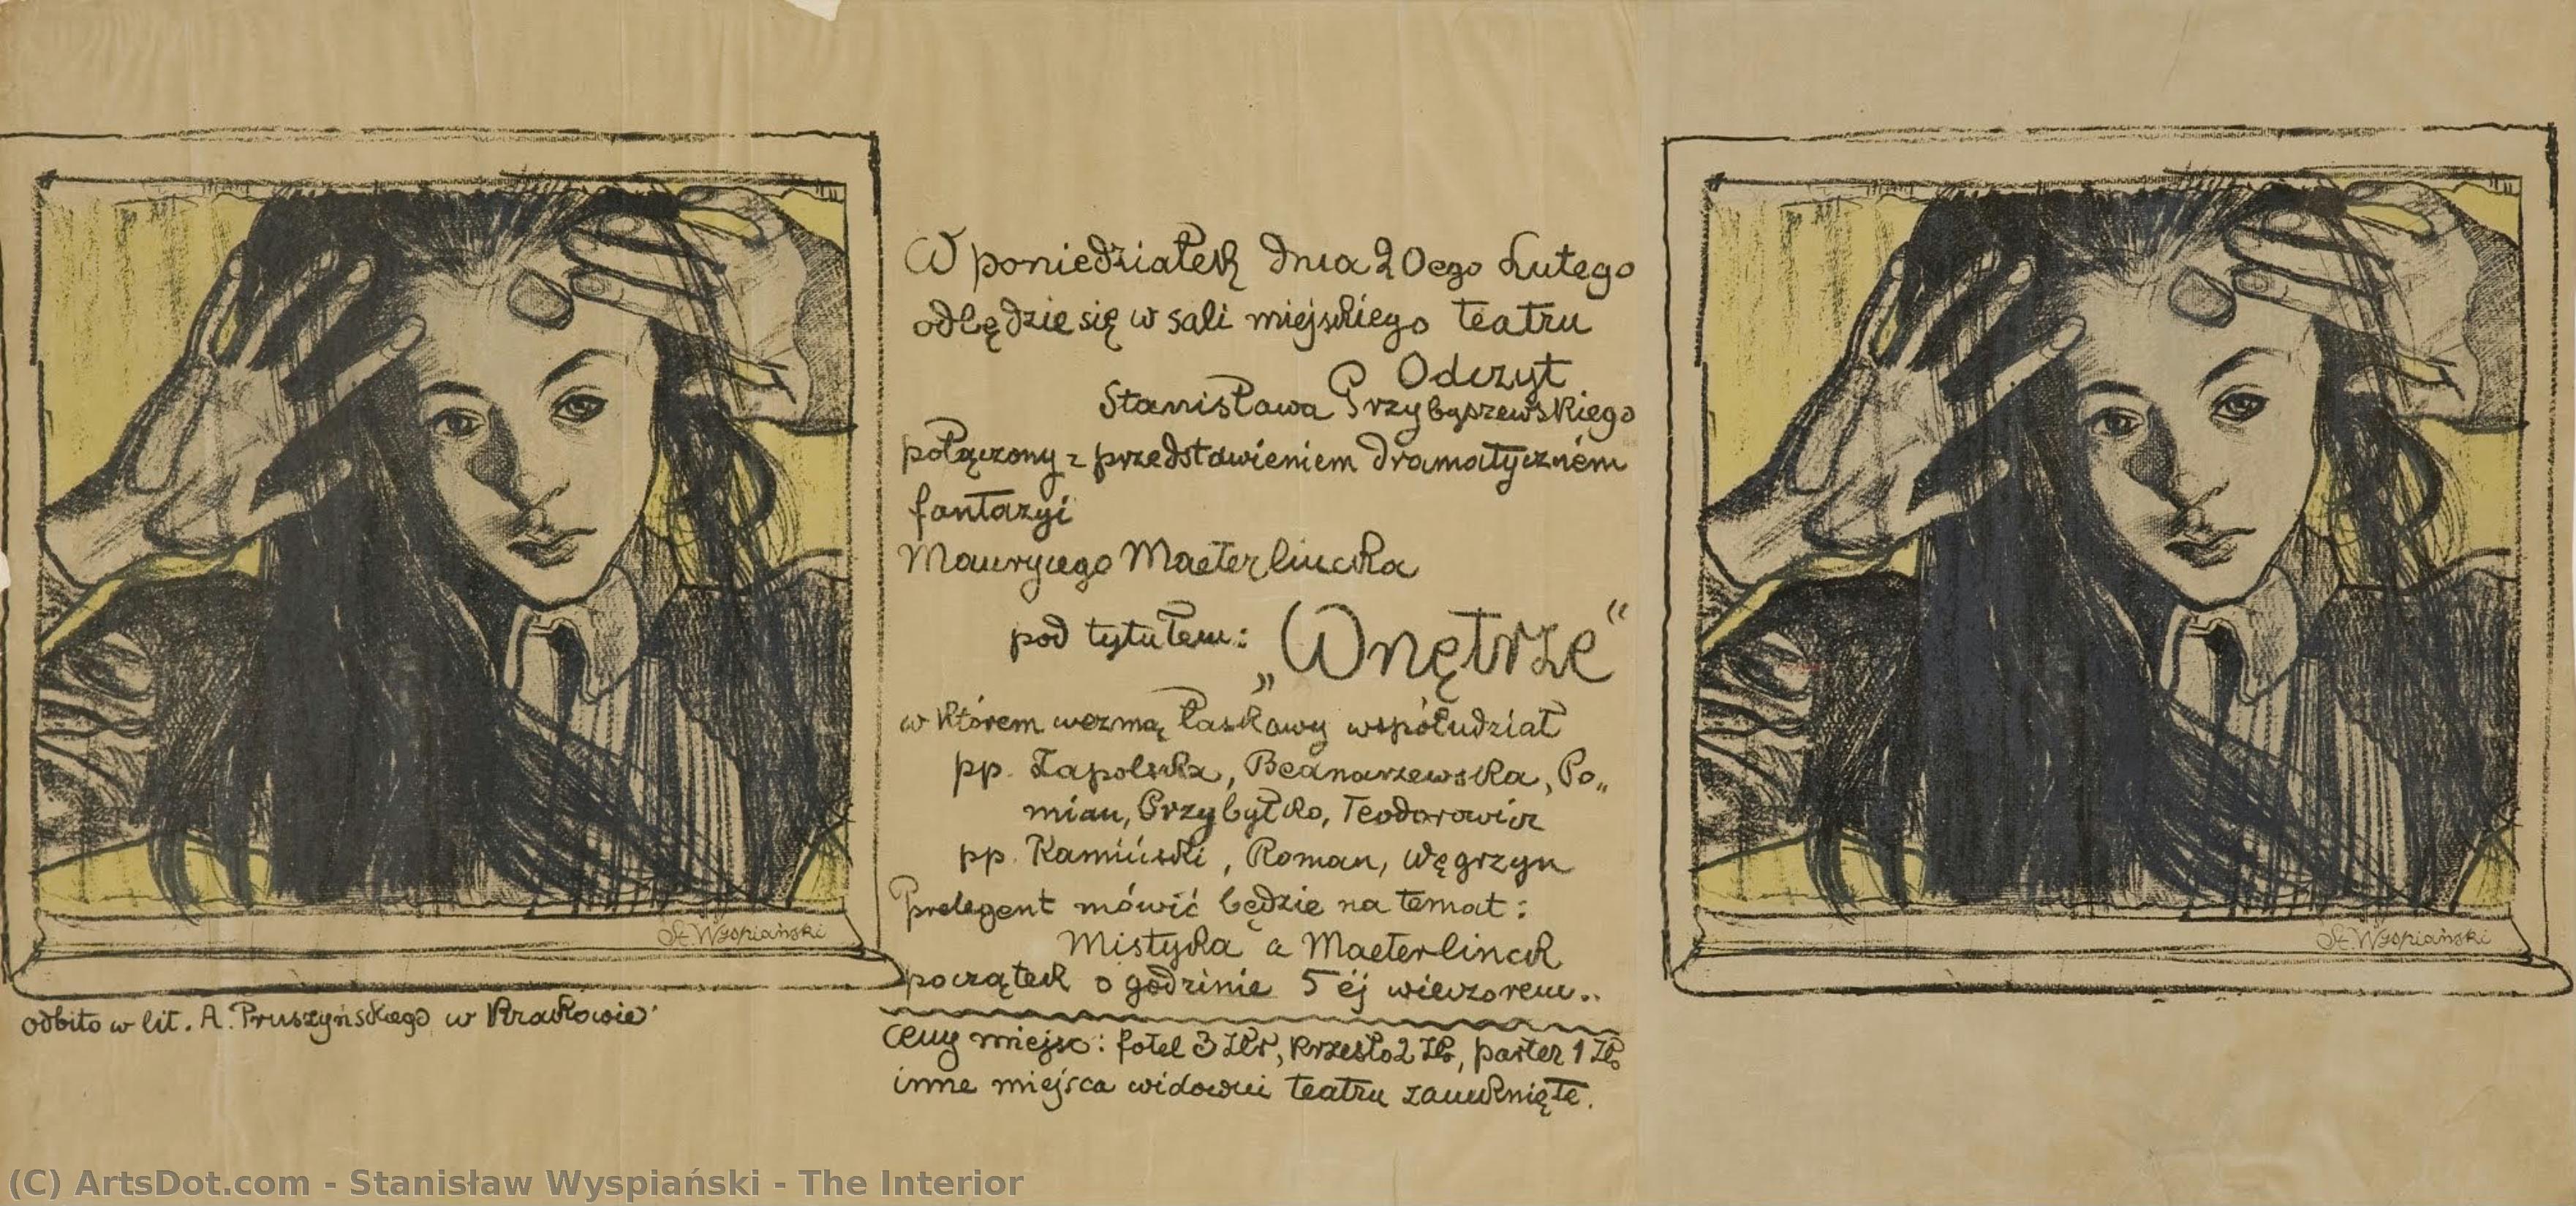 W poniedziałek dnia 20ego Lutego
odbędzie się w sali miejskiego teatru
Odczyt
Stanisława Przybyszewskiego
połączony z przedstawieniem dramatycznem
fantazyi
Maurycego Maeterlincka
pod tytułem: „Wnętrze“
w którem wezmą łaskawy współudział
pp. Zapolska, Bednarzewska, Po„
mian, Przybyłko, Teodorowicz
pp. Kamiński, Roman, Węgrzyn
Prelegent mówić będzie na temat:
Mistyka a Maeterlinck
początek o godzinie 5 ej wieczorem..
Ceny miejsc: fotel 3 Złr, krzesło 2 Zł, parter 1 Zł
inne miejsca widowni teatru zamknięte.
St. Wyspiański
odbito w lit. A. Pruszyńskiego w Krakowie
St. Wyspiański
(C) ArtsDot.com - Stanisław Wyspiański - The Interior